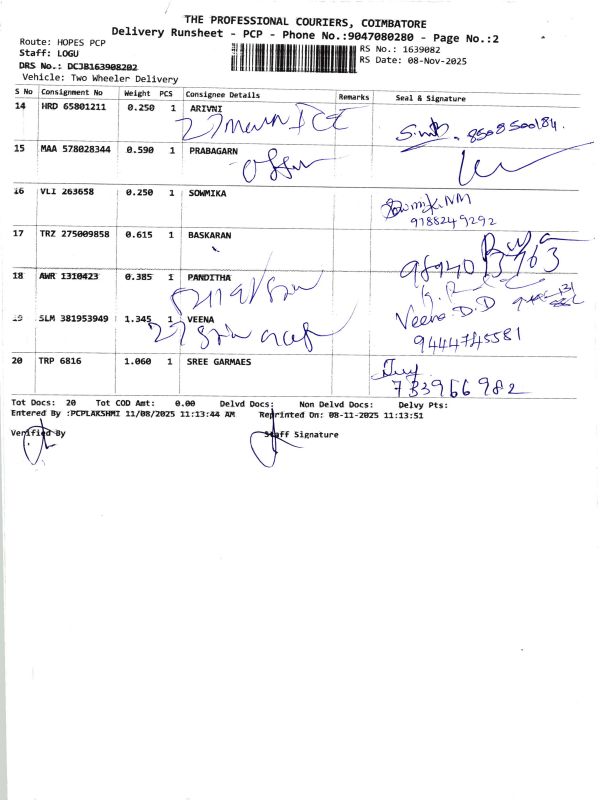 THE PROFESSIONAL COURIERS, COIMBATORE
Delivery Runsheet - PCP - Phone No.:9047080280 - Page No.:2
Route: HOPES PCP
RS No.: 1639082
Staff: LOGU
RS Date: 08-Nov-2025
DRS No.: DCJB163908202
Vehicle: Two Wheeler Delivery
S No Consignment No Weight PCS Consignee Details Remarks Seal & Signature
14 HRD 65801211 0.250 1 ARIVNI
8508500184.
15 MAA 578028344 0.590 1 PRABAGARN
16 VLI 263658 0.250 1 SOWMIKA
9788249292
17 TRZ 275009858 0.615 1 BASKARAN
18 AWR 1310423 0.385 1 PANDITHA
19 SLM 381953949 1.345 1 VEENA
Veena.D.D
9444745581
20 TRP 6816 1.060 1 SREE GARMAES
733966982
Tot Docs: 20 Tot COD Amt: 0.00 Delvd Docs: Non Delvd Docs: Delvy Pts:
Entered By :PCPLAKSHMI 11/08/2025 11:13:44 AM Reprinted On: 08-11-2025 11:13:51
Verified By Staff Signature